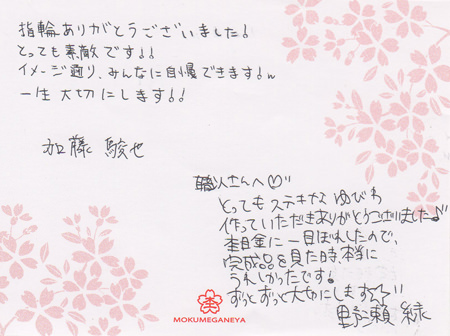 指輪ありがとうございました!
とっても素敵です!!
イメージ通り、みんなに自慢できます!!
一生大切にします!!
加藤 駿也
職人さんへ♡
とってもステキな ゆびわ
作っていただきありがとうございました♪
木目金に一目ぼれしたので、
完成品を見た時、本当に
うれしかったです!
ずっとずっと大切にします☆
野瀬 緑
MOKUMEGANEYA